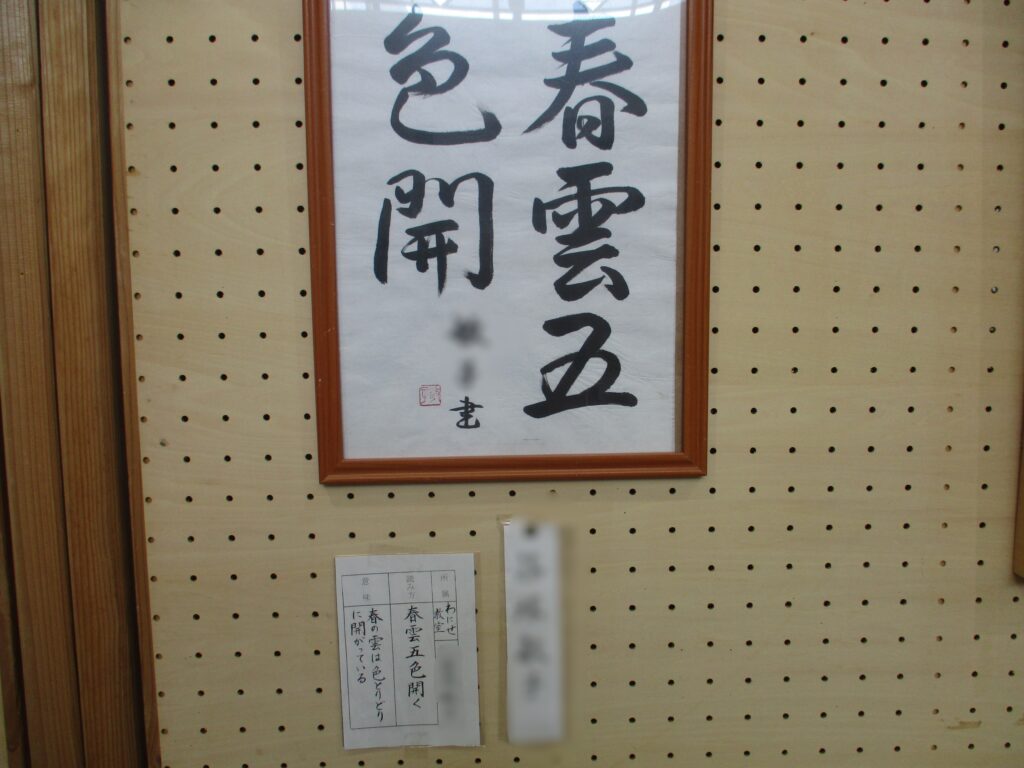 春雲五
色開
書
所属
わにせ
教室
読み方
春雲五色開く
意味
春の雲は色とりどり
に開かっている